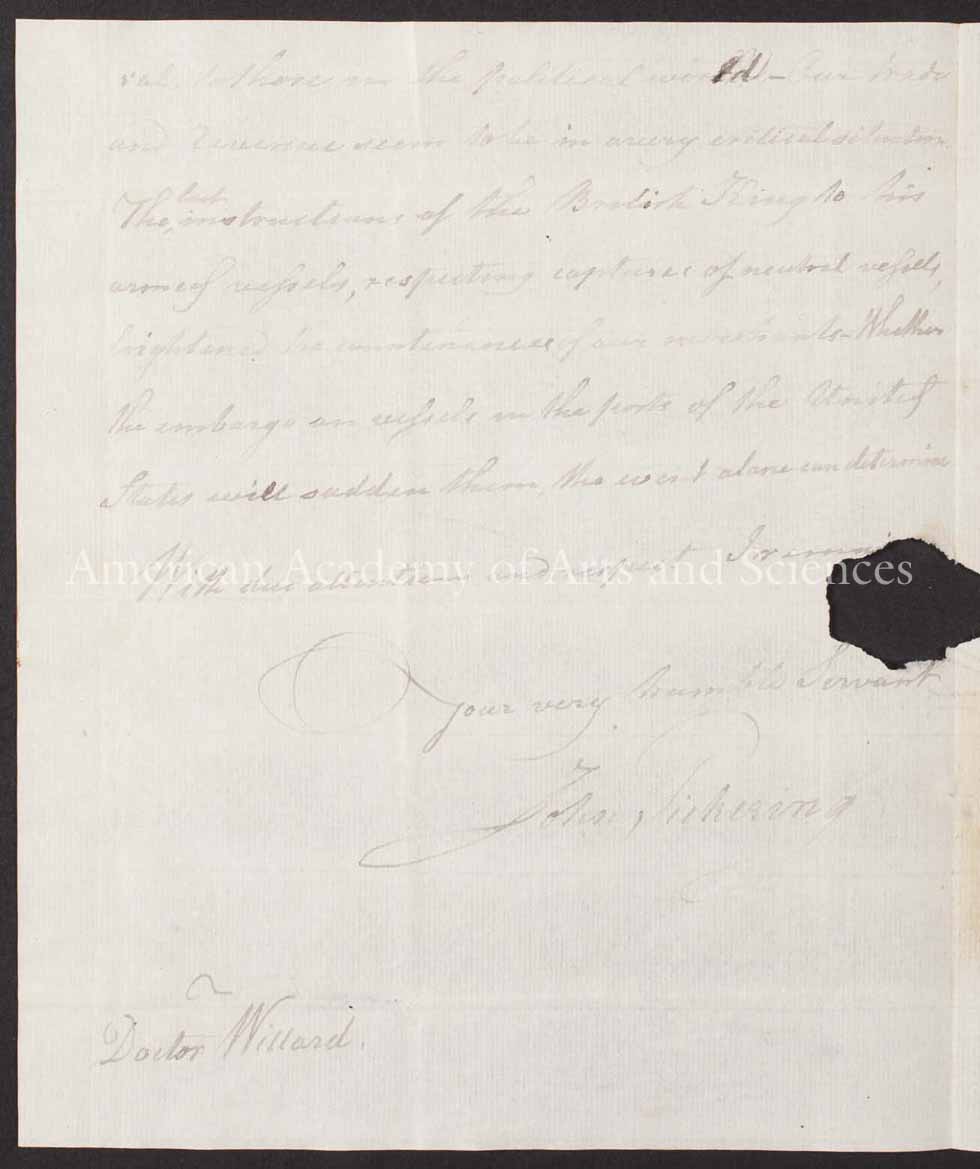 to those in the political world – Our trade
and revenue seem to be in a very critical situation.
last
The instructions of the British King to his
armed vessels, respecting captures of neutral vessels,
brightened the countenances of our merchants – Whether
the embargo on vessels in the ports of the United
States will sadden them, the event alone can determine
With due attention and respect I remain
American Academy of Arts and Sciences
Your very humble Servant
John Pickering
Doctor Willard.